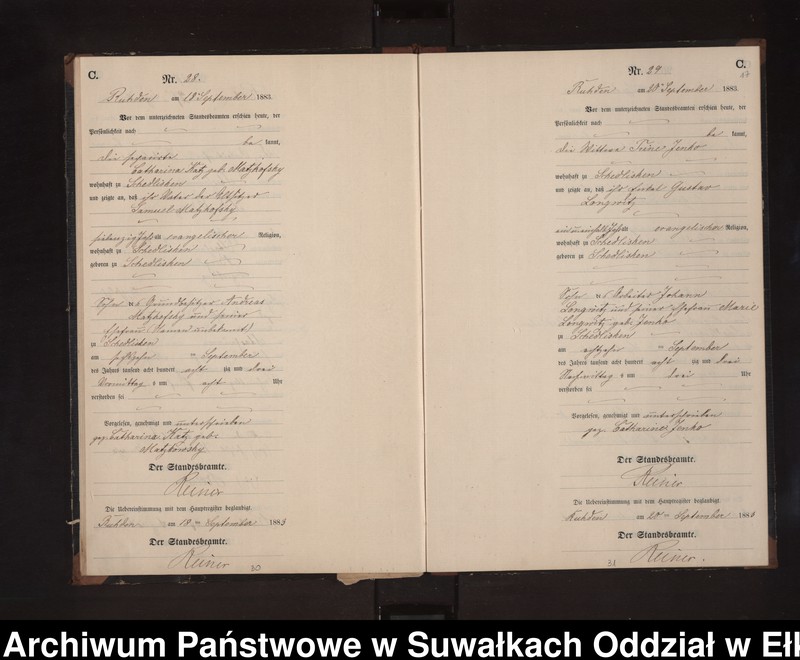 C.
Nr. 28.
Ruhden am 18 September 1883.
Vor dem unterzeichneten Standesbeamten erschien heute, der
Persönlichkeit nach
be kannt,
die separirte
Catharina Katz geb. Matzkofsky
wohnhaft zu Schedlisken
und zeigte an, daß ihr Vater der Altsitzer
Samuel Matzkofsky
evangelischer Religion,
wohnhaft zu Schedlisken
geboren zu Schedlisken
Sohn des Grundbesitzer Andreas
Matzkofsky und seiner
Ehefrau (Namen unbekannt)
zu Schedlisken
am sechszehn ten September
des Jahres tausend acht hundert acht zig und drei
Vormittag s um acht Uhr
verstorben sei
Vorgelesen, genehmigt und unterschrieben
gez. Catharina Katz geb.
Matzkowsky
Der Standesbeamte.
Reiner
Die Uebereinstimmung mit dem Hauptregister beglaubigt.
Ruhden am 18 ten September 1883
Der Standesbeamte.
Reiner
30
C.
Nr. 29
Ruhden am 20 September 1883.
Vor dem unterzeichneten Standesbeamten erschien heute, der
Persönlichkeit nach
be kannt,
die Wittwe Trine Jenko
wohnhaft zu Schedlisken
und zeigte an, daß ihr Enkel Gustav
Longwitz
evangelischer Religion,
wohnhaft zu Schedlisken
geboren zu Schedlisken
Sohn des Arbeiter Johann
Longwitz und seiner Ehefrau Marie
Longwitz geb. Jenko
zu Schedlisken
am achtzehn ten September
des Jahres tausend acht hundert acht zig und drei
Nachmittag s um drei Uhr
verstorben sei
Vorgelesen, genehmigt und unterschrieben
gez Catharine Jenko
Der Standesbeamte.
Reiner
Die Uebereinstimmung mit dem Hauptregister beglaubigt.
Ruhden am 20 ten September 1883
Der Standesbeamte.
Reiner.
31
Archiwum Państwowe w Suwałkach Oddział w Ełk